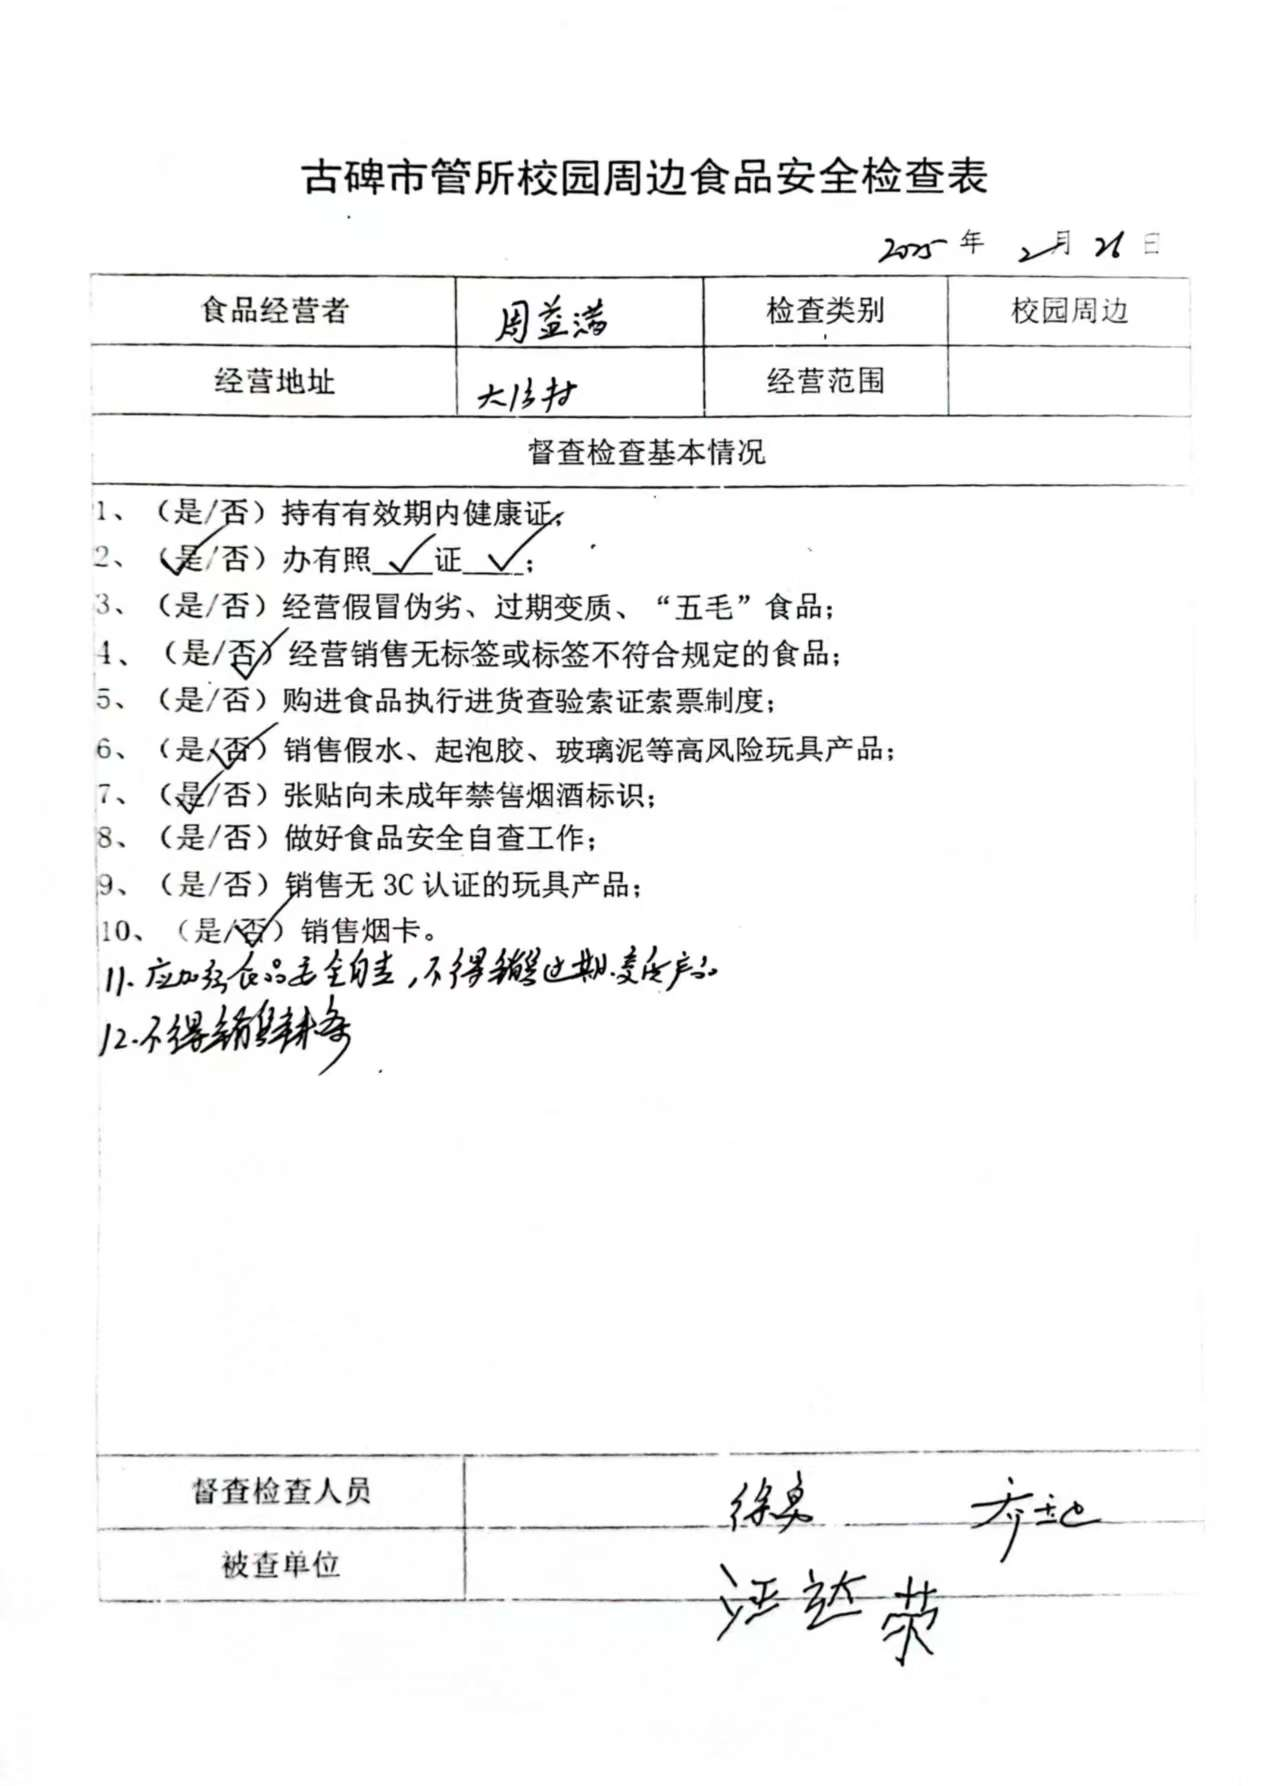 古碑市管所校园周边食品安全检查表
2025年 2月 26日
食品经营者 周益满 检查类别 校园周边
经营地址 村 经营范围
督查检查基本情况
1、（是/否）持有有效期内健康证；
2、（是/否）办有照 ✓ 证 ✓ ；
3、（是/否）经营假冒伪劣、过期变质、“五毛”食品；
4、（是/否）经营销售无标签或标签不符合规定的食品；
5、（是/否）购进食品执行进货查验索证索票制度；
6、（是/否）销售假水、起泡胶、玻璃泥等高风险玩具产品；
7、（是/否）张贴向未成年禁售烟酒标识；
8、（是/否）做好食品安全自查工作；
9、（是/否）销售无 3C 认证的玩具产品；
10、（是/否）销售烟卡。
11.应加强食品安全自查，不得销售过期.变质产品
12.不得销售辣条
督查检查人员
被查单位 汪达荣